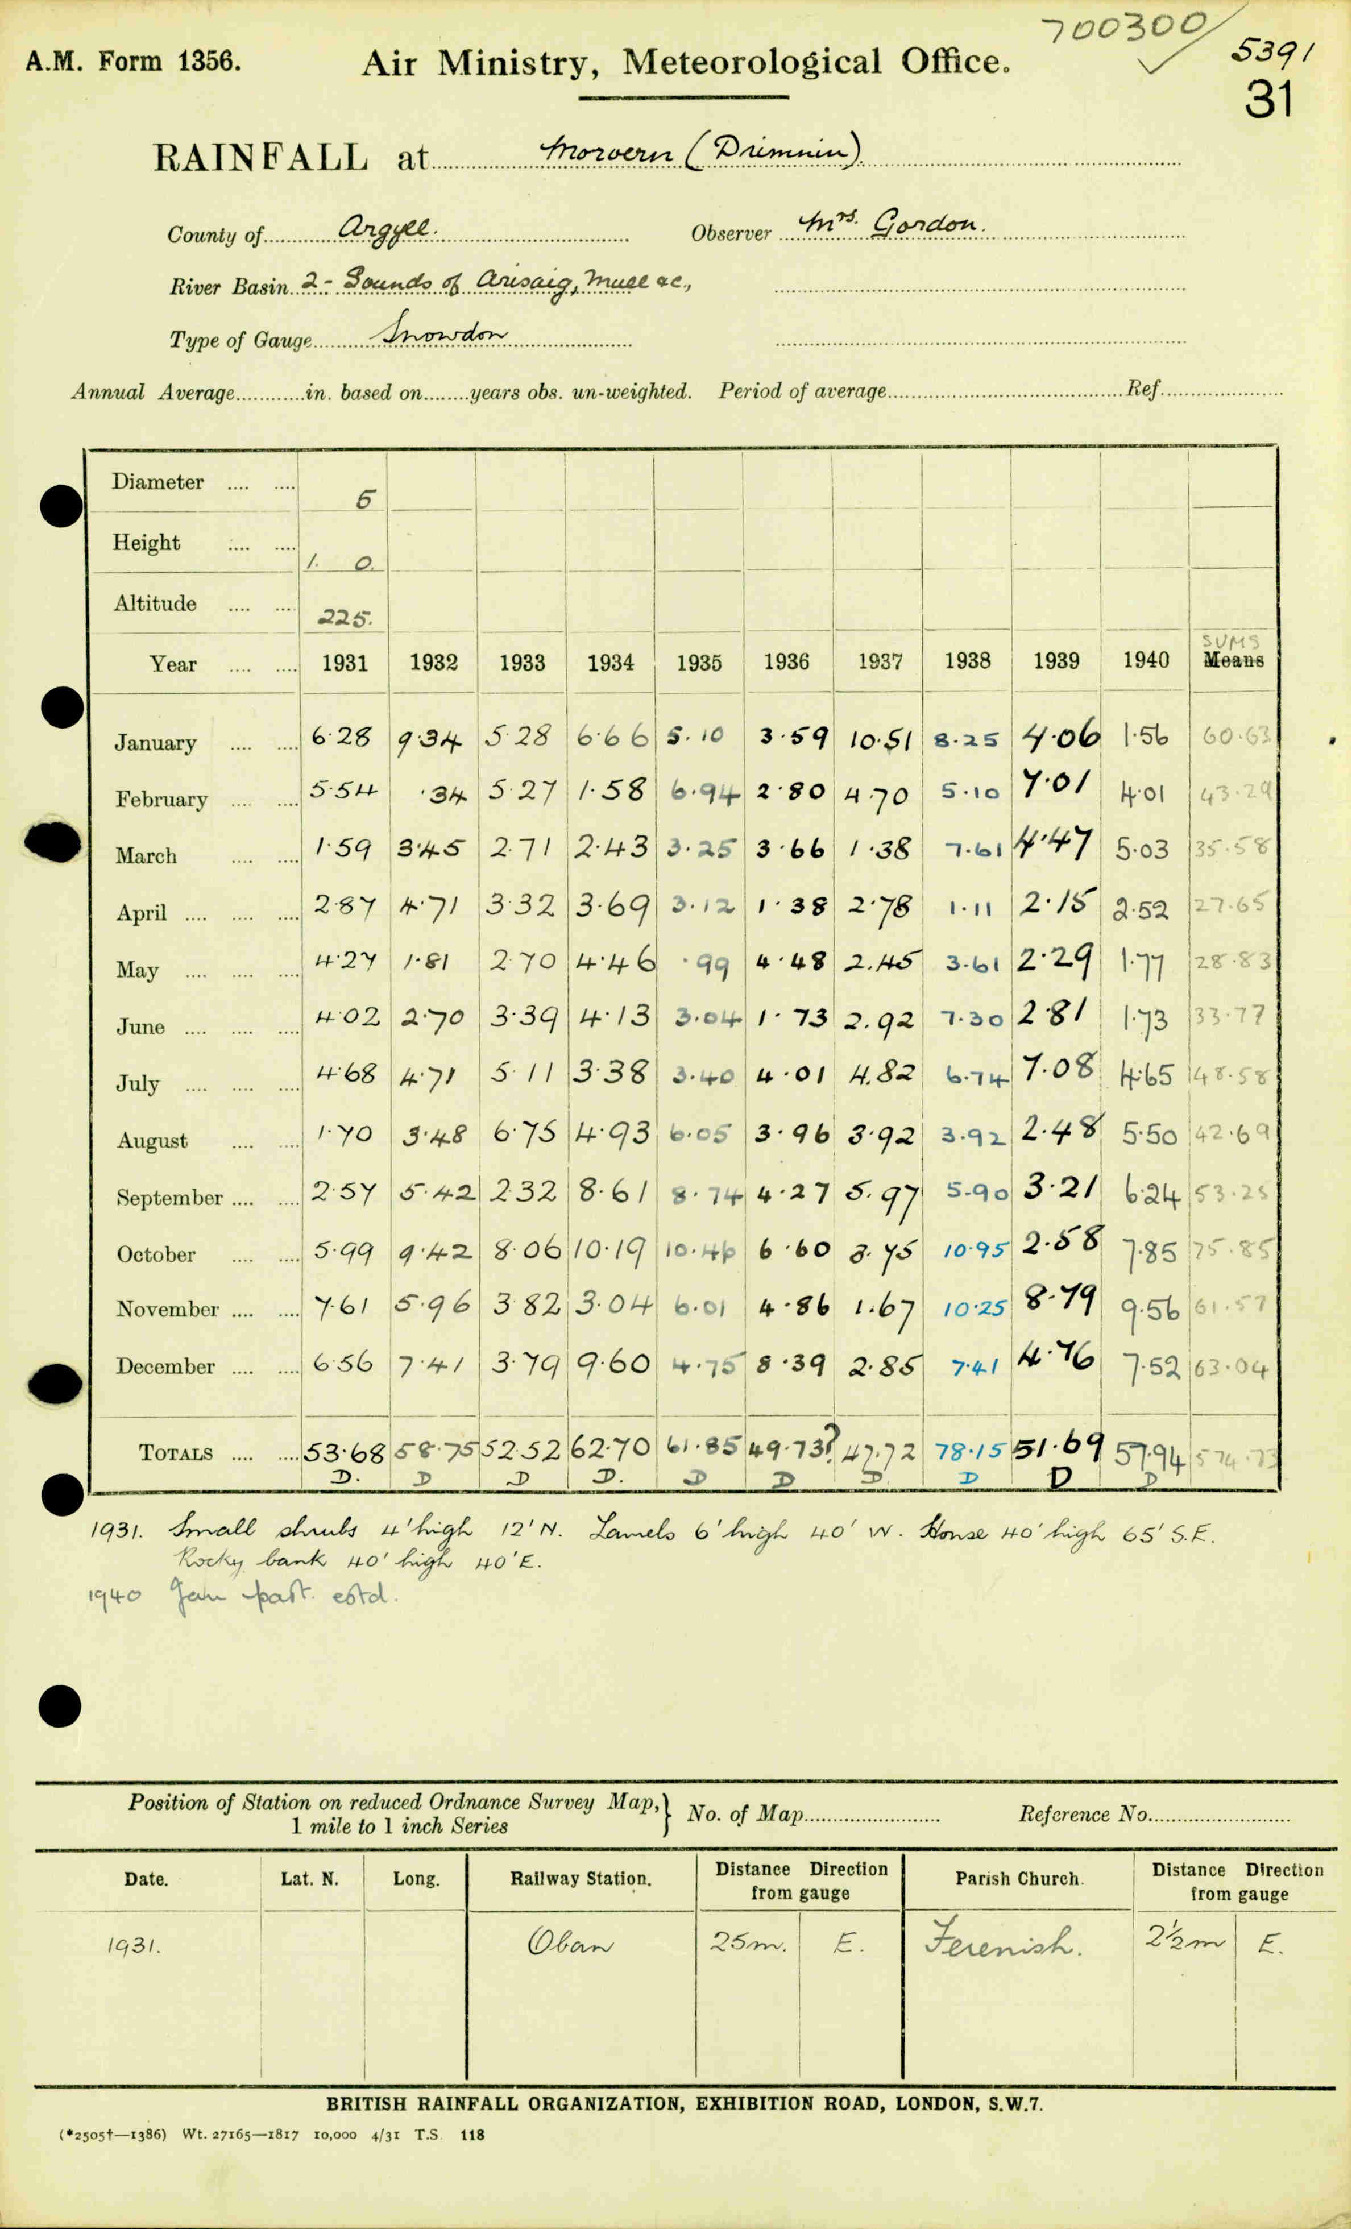 700300
A.M. Form 1356. Air Ministry, Meteorological Office. 5391
31
RAINFALL at Morvern (Drimnin)
County of Argyll. Observer Mrs. Gordon.
River Basin 2 - Sounds of Arisaig, Mull &c.,
Type of Gauge Snowdon
Annual Average in. based on years obs. un-weighted. Period of average Ref.
Diameter 5
Height 1. 0.
Altitude 225.
SUMS
Year 1931 1932 1933 1934 1935 1936 1937 1938 1939 1940 Means
January 6.28 9.34 5.28 6.66 5.10 3.59 10.51 8.25 4.06 1.56 60.63
February 5.54 .34 5.27 1.58 6.94 2.80 4.70 5.10 7.01 4.01 43.29
March 1.59 3.45 2.71 2.43 3.25 3.66 1.38 7.61 4.47 5.03 35.58
April 2.87 4.71 3.32 3.69 3.12 1.38 2.78 1.11 2.15 2.52 27.65
May 4.27 1.81 2.70 4.46 .99 4.48 2.45 3.61 2.29 1.77 28.83
June 4.02 2.70 3.39 4.13 3.04 1.73 2.92 7.30 2.81 1.73 33.77
July 4.68 4.71 5.11 3.38 3.40 4.01 4.82 6.74 7.08 4.65 48.58
August 1.70 3.48 6.75 4.93 6.05 3.96 3.92 3.92 2.48 5.50 42.69
September 2.57 5.42 2.32 8.61 8.74 4.27 5.97 5.90 3.21 6.24 53.25
October 5.99 9.42 8.06 10.19 10.46 6.60 3.75 10.95 2.58 7.85 75.85
November 7.61 5.96 3.82 3.04 6.01 4.86 1.67 10.25 8.79 9.56 61.57
December 6.56 7.41 3.79 9.60 4.75 8.39 2.85 7.41 4.76 7.52 63.04
TOTALS 53.68 58.75 52.52 62.70 61.85 49.73? 47.72 78.15 51.69 57.94 574.73
D. D D D. D D D D D D
1931. Small shrubs 4' high 12' N. Laurels 6' high 40' W. House 40' high 65' S.E.
Rocky bank 40' high 40' E.
1940 Jan part. estd.
Position of Station on reduced Ordnance Survey Map, 1 mile to 1 inch Series } No. of Map Reference No.
Date. Lat. N. Long. Railway Station. Distance Direction from gauge Parish Church. Distance Direction from gauge
1931. Oban 25m. E. Ferenish. 2½m E.
BRITISH RAINFALL ORGANIZATION, EXHIBITION ROAD, LONDON, S.W.7.
(*2505†—1386) Wt. 27165—1817 10,000 4/31 T.S. 118